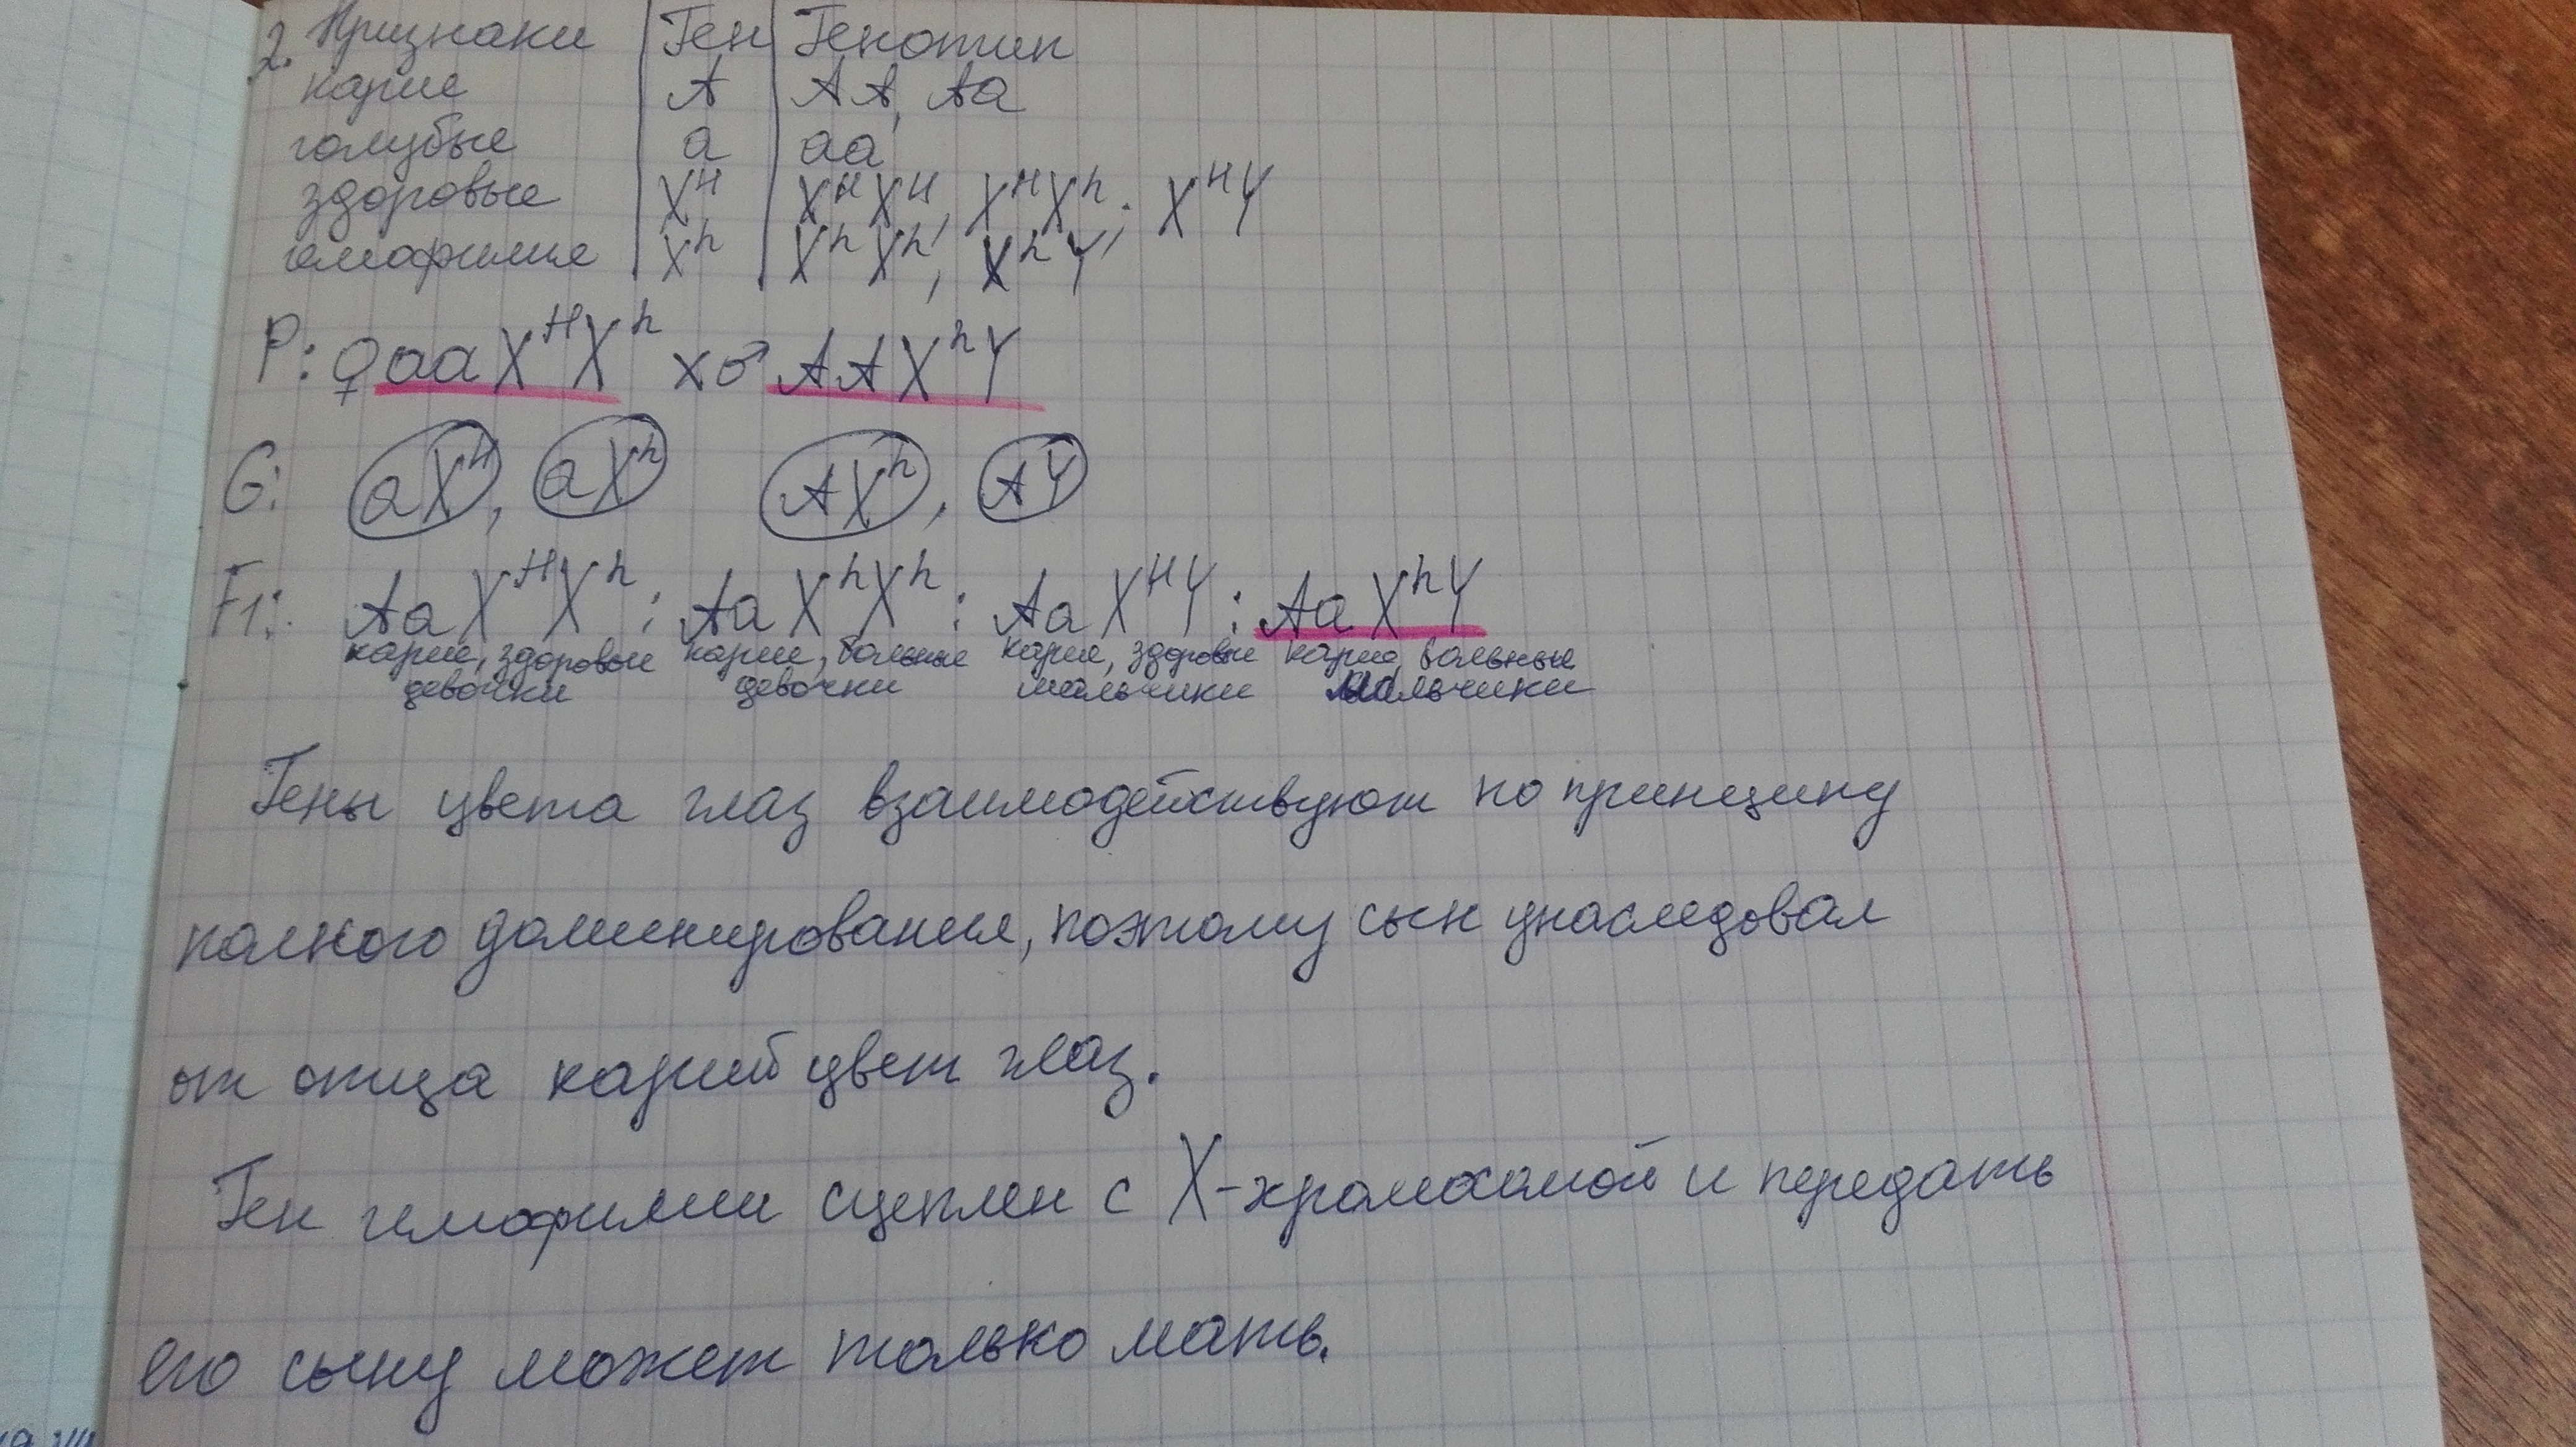 2. Признаки | Ген | Генотип
карие | А | АА, Аа
голубые | а | аа
здоровые | Xᴴ | XᴴXᴴ, XᴴXʰ; XᴴY
гемофилия | Xʰ | XʰXʰ, XʰY
P: ♀ааXᴴXʰ x ♂ААXʰY
G: аXᴴ, аXʰ АXʰ, АY
F1: АаXᴴXʰ : АаXʰXʰ : АаXᴴY : АаXʰY
карие, здоровые карие, больные карие, здоровые карие, больные
девочки девочки мальчики мальчики
Гены цвета глаз взаимодействуют по принципу
полного доминирования, поэтому сын унаследовал
от отца карий цвет глаз.
Ген гемофилии сцеплен с X-хромосомой и передать
его сыну может только мать.